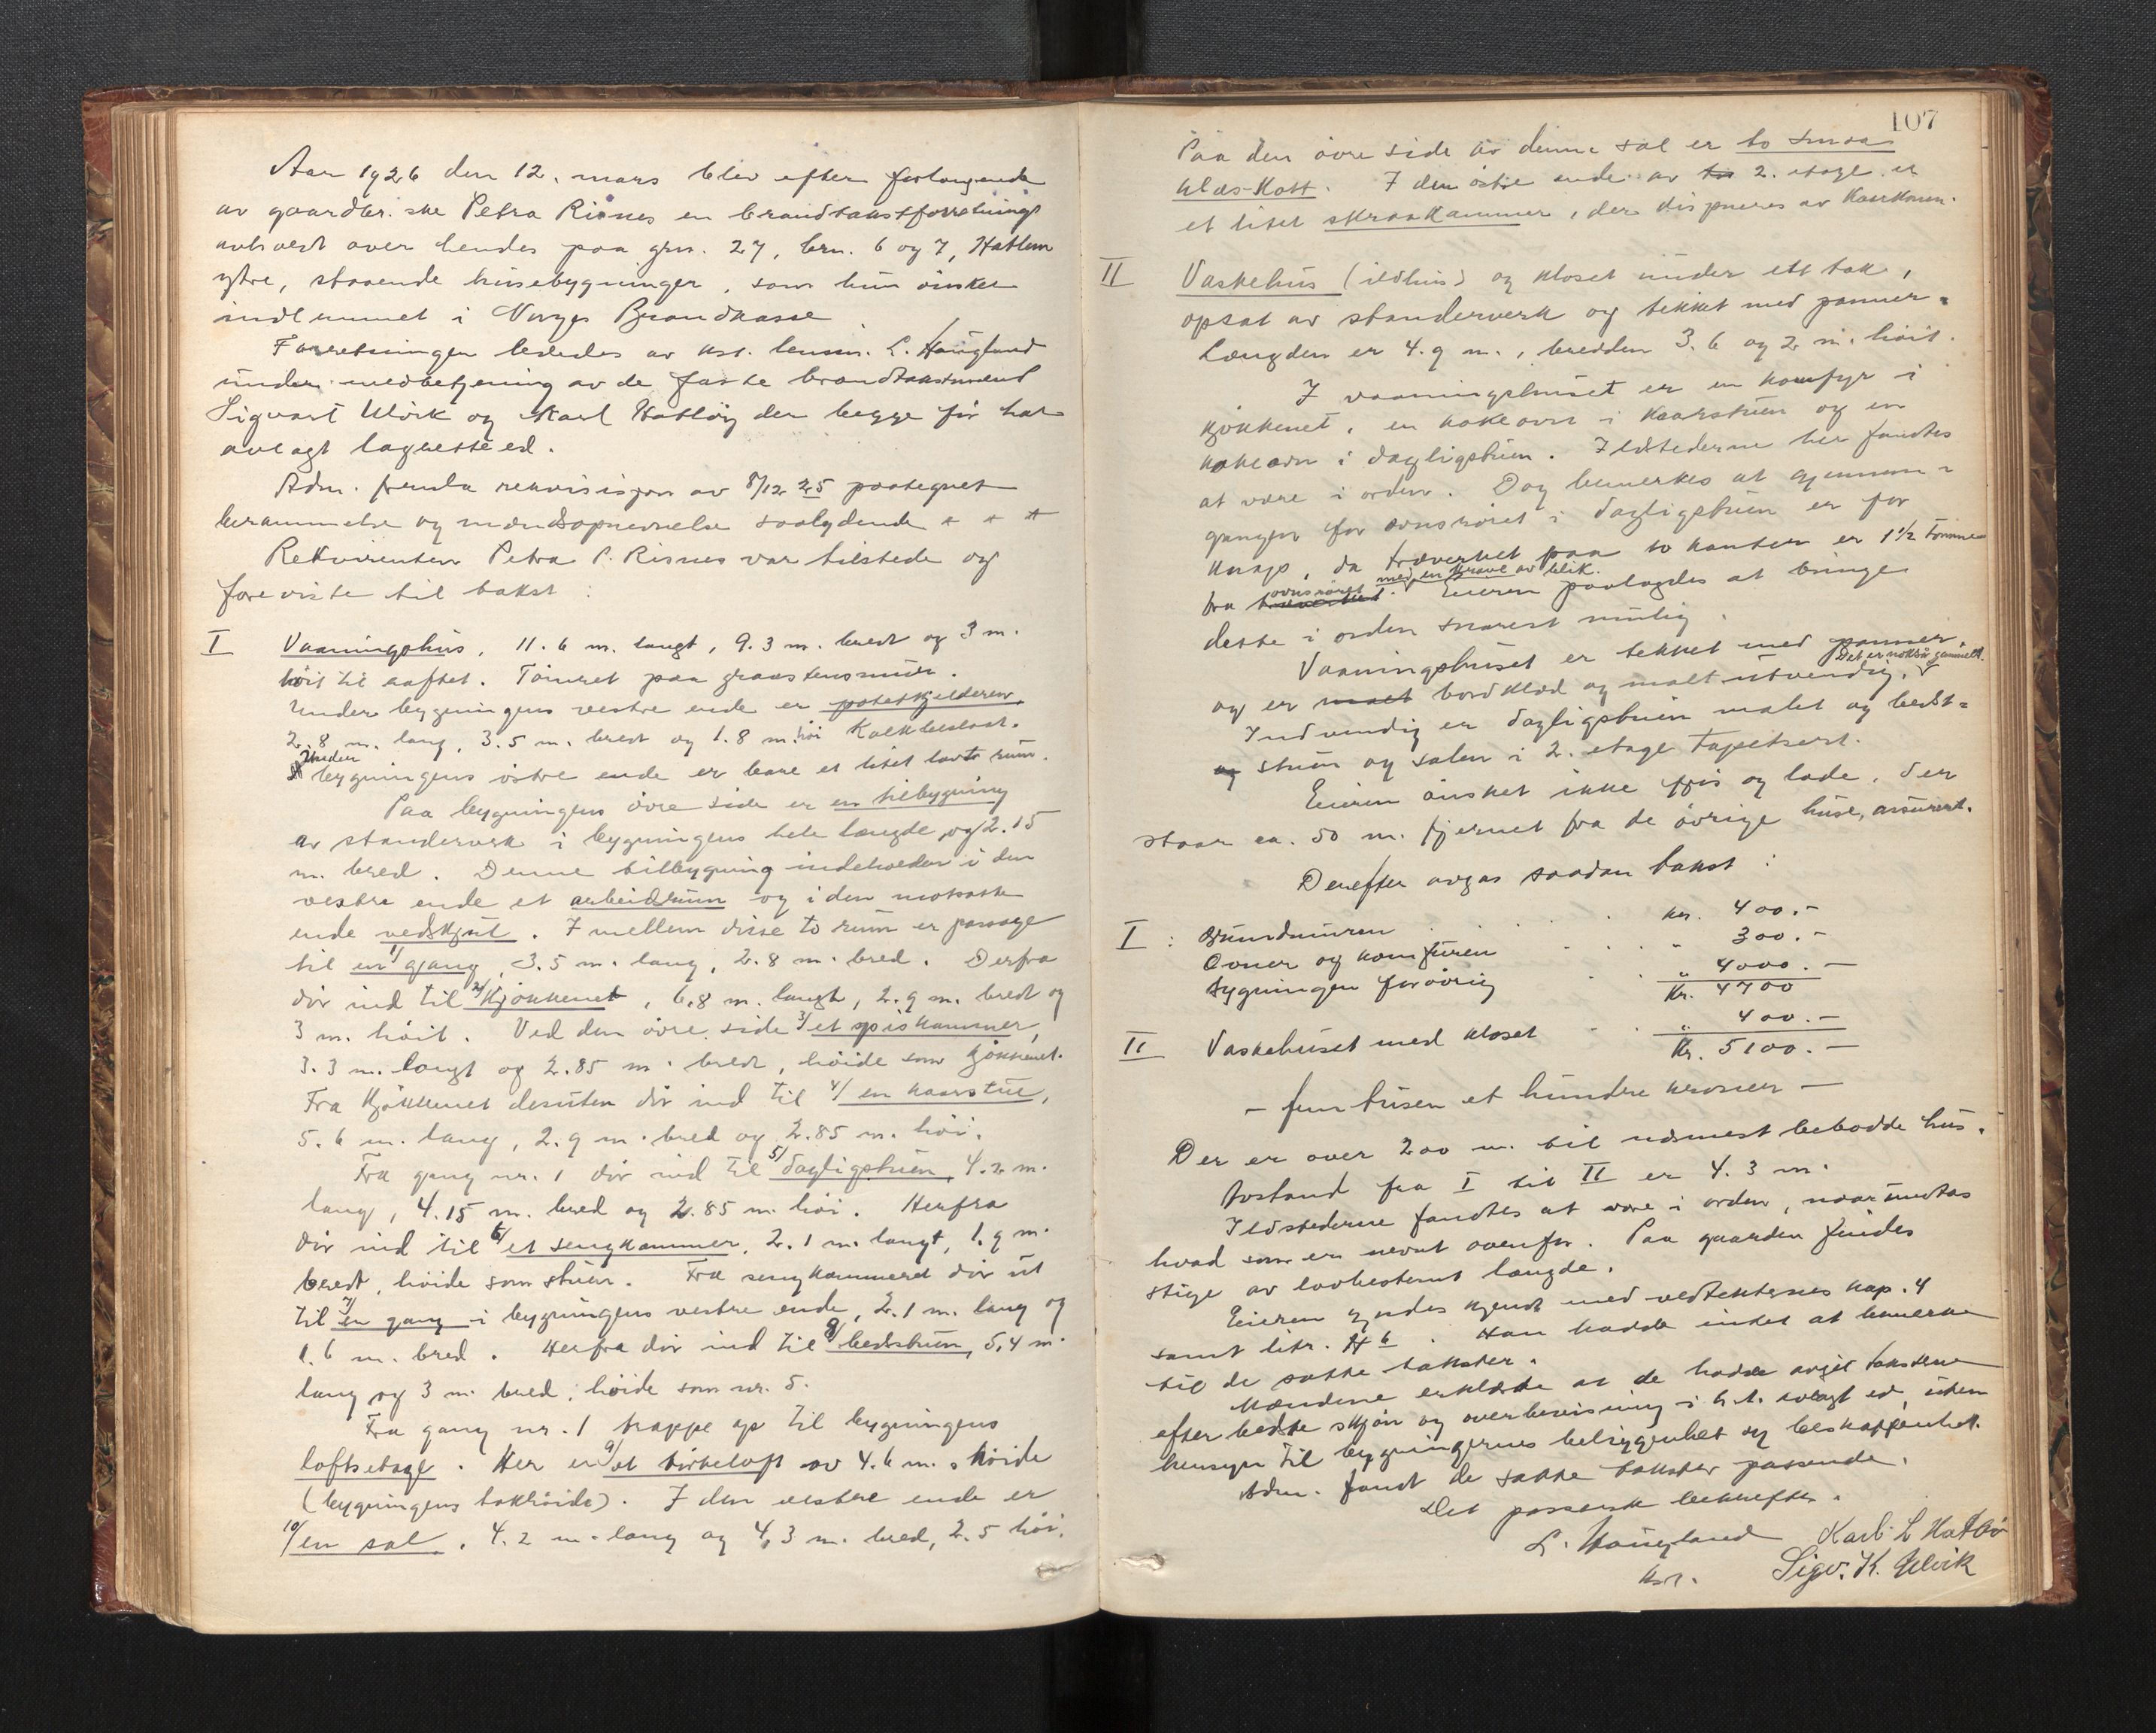 Aar 1926 den 12. mars blev efter forlangende
av gaardbr.ske Petra Risnes en brandtakstforretning
avholdt over hendes paa gnr. 27, brn. 6 og 7, Hatlem
ytre, staaende husebygninger, som hun önsker
indlemmet i Norges Brandkasse
Forretningen lededes av kst. lensm. L. Haugland
under medbetjening av de faste brandtakstmænd
Sigvart Ulvik og Karl Hatløy der begge før har
avlagt lagretteed.
Adm. fremla rekvisisjon av 8/12 25 paategnet
berammelse og mændsopnevnelse saalydende * * *
Rekvirenten Petra P. Risnes var tilstede og
foreviste til takst:
I Vaaningshus, 11.6 m. langt, 9.3 m. bredt og 3 m.
höit til loftet. Tömret paa graastensmur.
Under bygningens vestre ende er potetkjelderen,
2.8 m. lang, 3.5 m. bred og 1.8 m. höi Kalkbeslaat.
Under bygningens östre ende er bare et litet lavt rum.
Paa bygningens övre side er en tilbygning
av standerverk i bygningens hele længde og 2.15
m. bred. Denne tilbygning indeholder i den
vestre ende et arbeidsrum og i den motsatte
ende vedskjul. I mellem disse to rum er passage
til 1/ en gang, 3.5 m. lang, 2.8 m. bred. Derfra
dör ind til 2/ Kjökkenet, 6.8 m. langt, 2.9 m. bredt og
3 m. höit. Ved den övre side 3/ et spiskammer,
3.3 m. langt og 2.85 m. bredt, höide som kjökkenet.
Fra Kjökkenet desuten dör ind til 4/ en kaarstue,
5.6 m. lang, 2.9 m. bred og 2.85 m. höi.
Fra gang nr. 1 dör ind til 5/ dagligstuen, 4.2 m.
lang, 4.15 m. bred og 2.85 m. höi. Herfra
dör ind til 6/ et sengkammer, 2.1 m. langt, 1.9 m.
bredt, höide som stuen. Fra sengkammeret dör ut
til 7/ en gang i bygningens vestre ende, 2.1 m. lang og
1.6 m. bred. Herfra dör ind til 8/ bedstuen, 5,4 m.
lang og 3 m. bred, höide som nr. 5.
Fra gang nr. 1 trappe op til bygningens
loftsetage. Her er 9/ et törkeloft av 4.6 m.s höide
(bygningens takhöide). I den vestre ende er
10/ en sal, 4.2 m. lang og 4,3 m. bred, 2.5 höi.
107
Paa den övre side av denne sal er to smaa
klæs-Kott. I den östre ende av 2. etage er
et litet skraakammer, der disponeres av Kaarkonen.
II Vaskehus (ildhus) og kloset under ett tak,
opsat av standerverk og tekket med panner.
Længden er 4.9 m., bredden 3.6 og 2 m. höit.
I vaaningshuset er en komfyr i
kjökkenet, en kokeovn i kaarstuen og en
kokeovn i dagligstuen. Ildstederne her fandtes
at være i orden. Dog bemerkes at gjennem-
gangen for ovnsröret i dagligstuen er for
knap, da træverket paa to kanter er 1 1/2 tomme
fra ovnsröret med en krave av blik. Eieren paalagdes at bringe
dette i orden snarest mulig.
Vaaningshuset er tekket med panner,
og er bordklæd og malt utvendig. Det er nokså gammelt.
Indvendig er dagligstuen malet og bedst-
stuen og salen i 2. etage tapetsert.
Eieren önsket ikke fjös og lade, der
staar ca. 50 m. fjernet fra de övrige huse, assurert.
Derefter avgas saadan takst:
I: Grundmuren kr. 400.-
Ovner og komfuren " 300.-
Bygningen forövrig " 4000.-
Kr. 4700
II Vaskehuset med kloset " 400.-
Kr. 5100.-
- fem tusen et hundre kroner -
Der er over 200 m. til nærmest bebodde hus.
Avstand fra I til II er 4.3 m.
Ildstederne fandtes at være i orden, naar undtas
hvad som er nevnt ovenfor. Paa gaarden findes
stige av lovbestemt længde.
Eieren gjordes kjendt med vedtekternes kap. 4
samt litr. H 6. Han hadde intet at bemerke
til de satte takster.
Mændene erklærte at de hadde avgit taksterne
efter bedste skjön og overbevisning i h.t. avlagt ed, uten
hensyn til bygningernes beliggenhet og beskaffenhet.
Adm. fandt de satte takster passende.
Det passerte bekreftes.
L. Haugland Karl L Hatløi
kst. Sigv. K. Ulvik